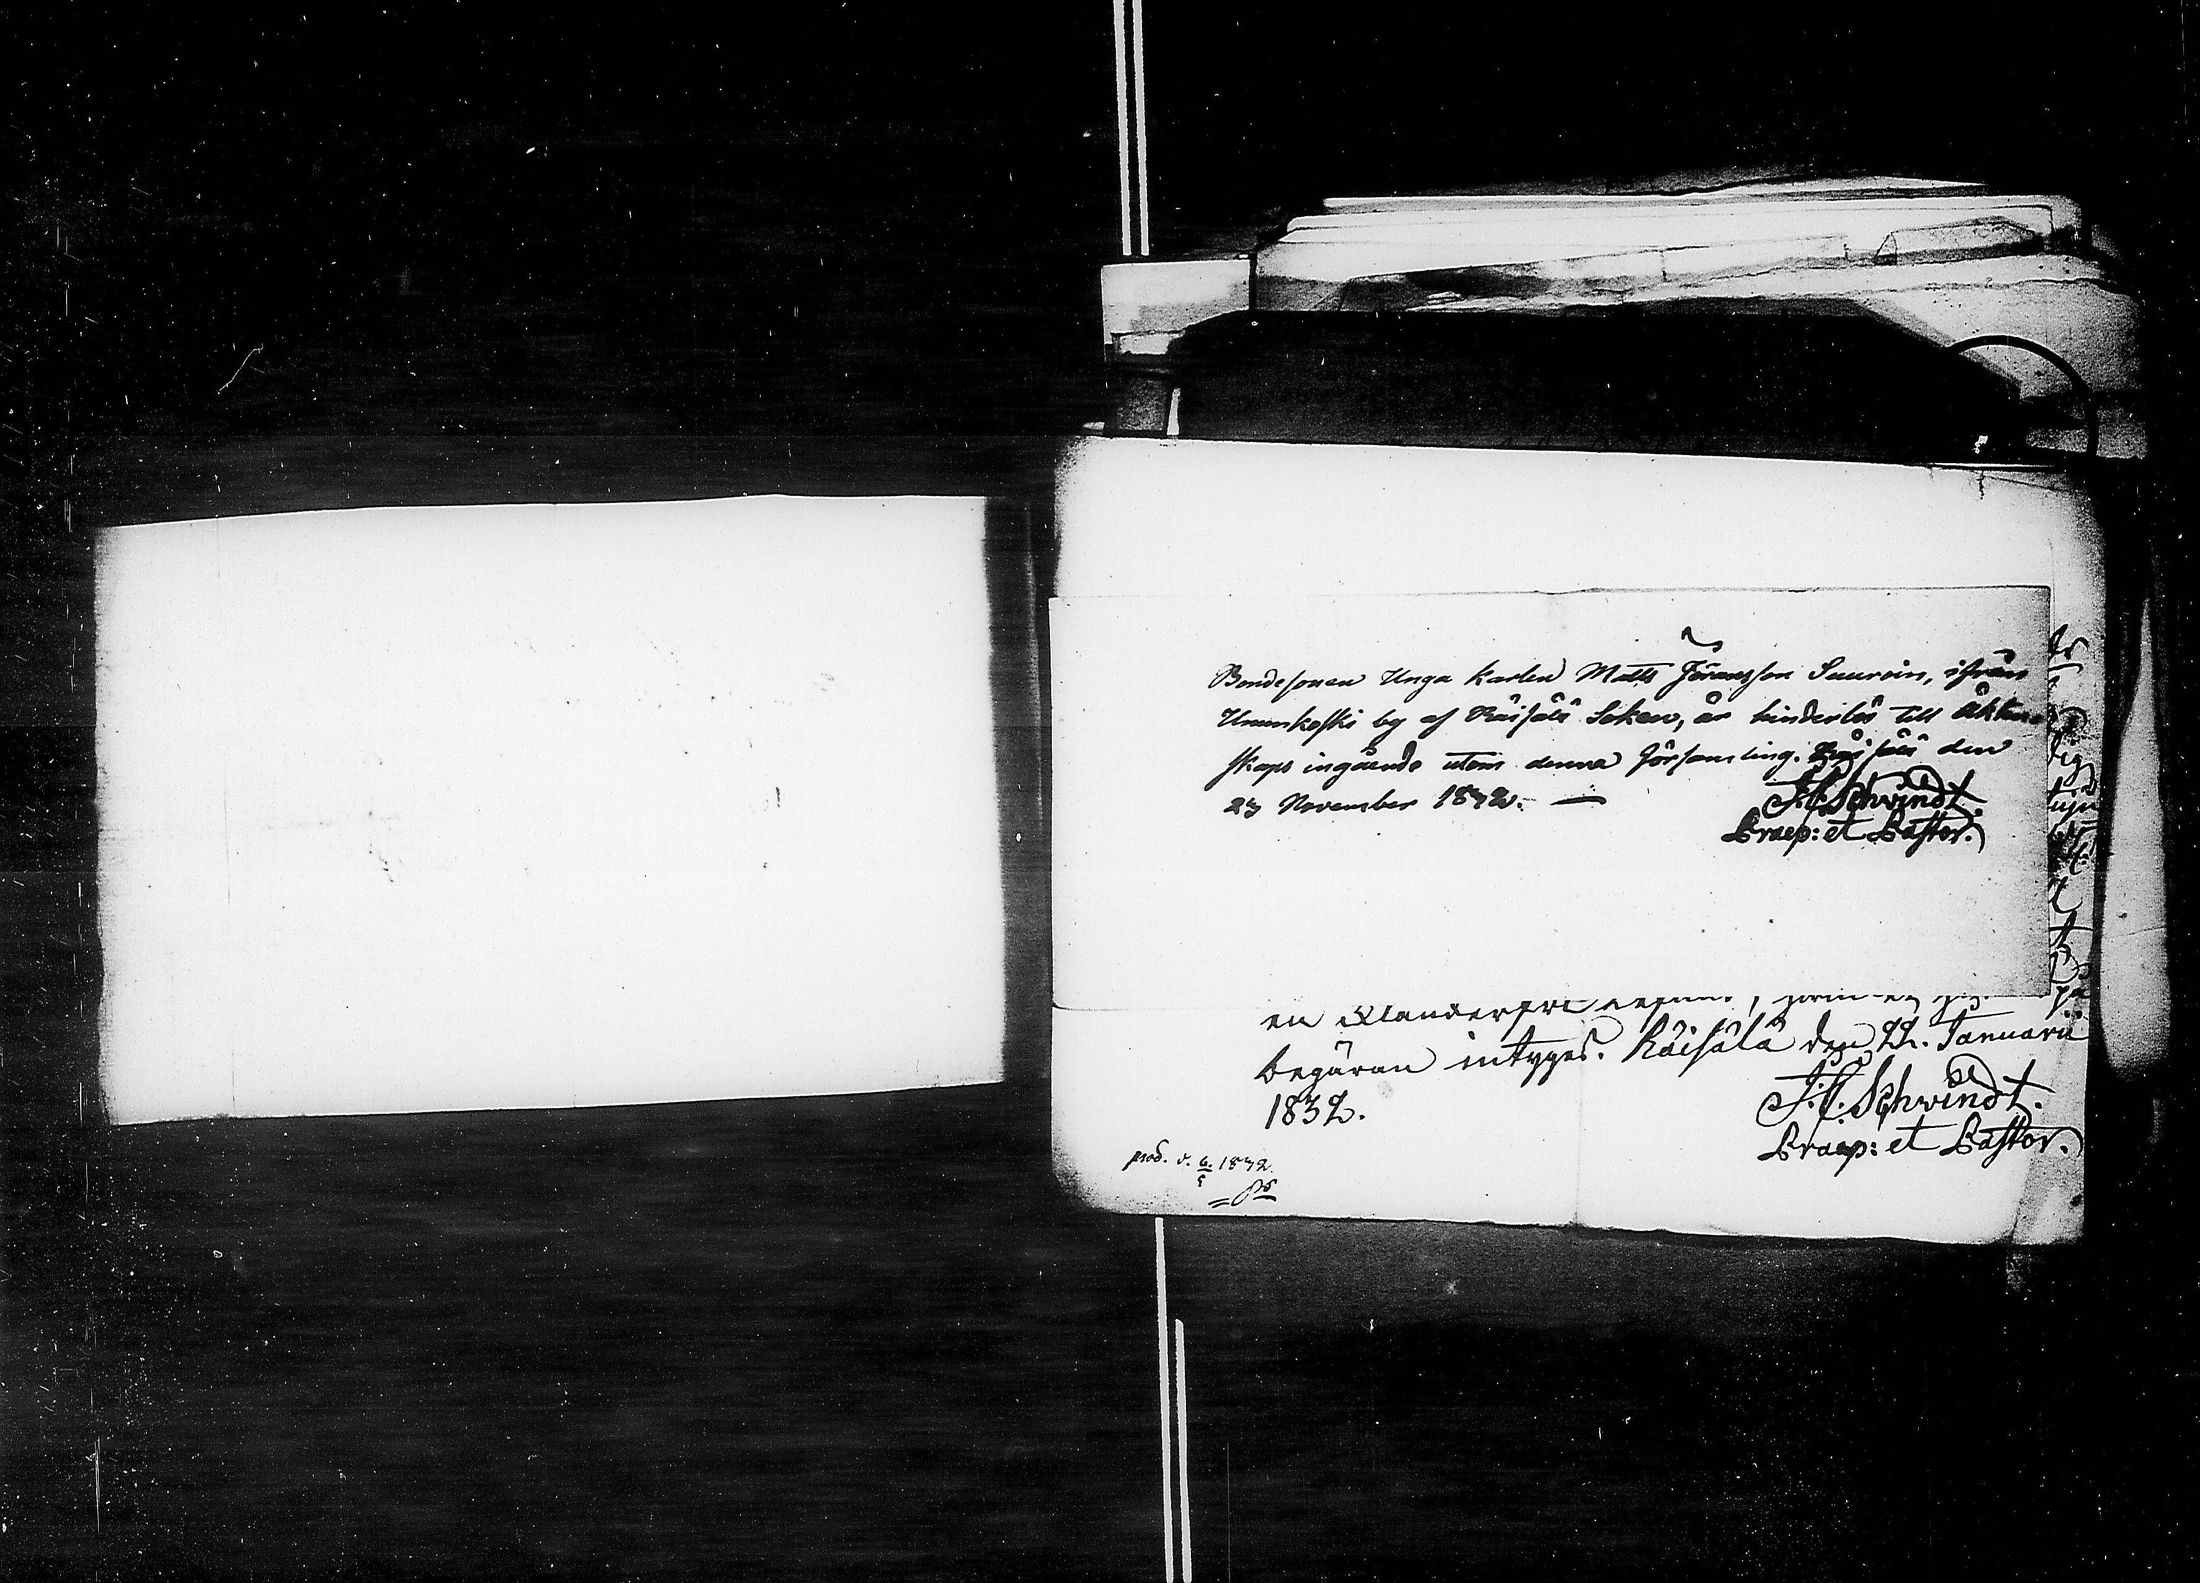 Bondesonen Unga Karlen Matts Jöransson Suuroin, ifrån
Unnunkoski by af Räisälä Soken, är hinderlös till äkten-
skaps ingående utom denna Församling. Räisälä den
23 November 1832. —
J. C. Schvindt.
Præp: et Pastor.
en Klanderfri
begäran intyges. Räisälä den 22. Januarii
1832.
J. C. Schvindt.
Præp: et Pastor.
prod. d. 6/5 1832.